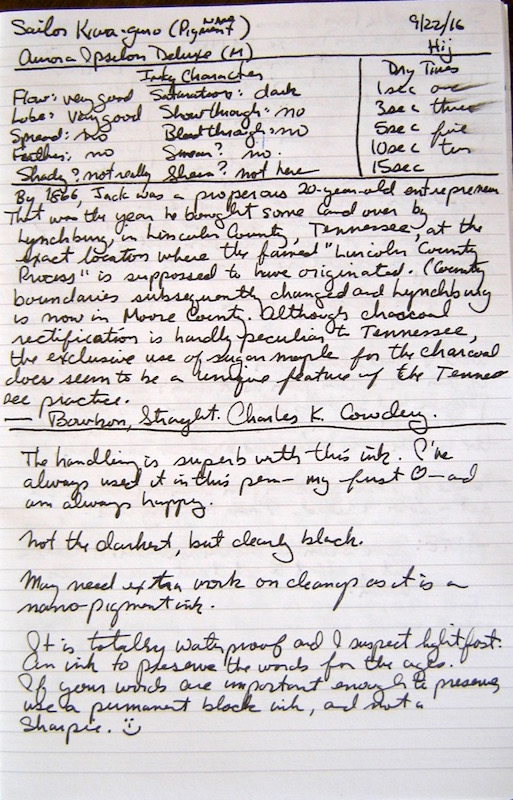 Sailor Kiwa-guro (Pigment Nano) 9/22/16
Aurora Ipsilon Deluxe (M) Hij
Inky Character Dry Times
Flow: very good Saturation: dark 1sec one
Lube: very good Showthrough: no 3sec three
Spread: no Bleedthrough: no 5sec five
Feather: no Smear? no. 10sec ten
Shady? not really Sheen? not here 15sec
By 1866, Jack was a properous 20-year-old entrepreneur
That was the year he bought some land over by
Lynchburg, in Lincoln County, Tennessee, at the
exact location where the famed "Lincoln County
Process" is suppossed to have originated. (County
boundaries subsequently changed and Lynchburg
is now in Moore County. Although charcoal
rectification is hardly peculiar to Tennessee,
the exclusive use of sugar maple for the charcoal
does seem to be a unique feature of the Tennes
see practice.
— Bourbon, Straight. Charles K. Cowdery.
The handling is superb with this ink. I've
always used it in this pen - my first ♡ - and
am always happy.
Not the darkest, but clearly black.
May need extra work on cleanup as it is a
nano-pigment ink.
It is totally waterproof and I suspect lightfast.
An ink to preserve the words for the ages.
If your words are important enough to preserve,
use a permanent black ink, and not a
Sharpie. :)